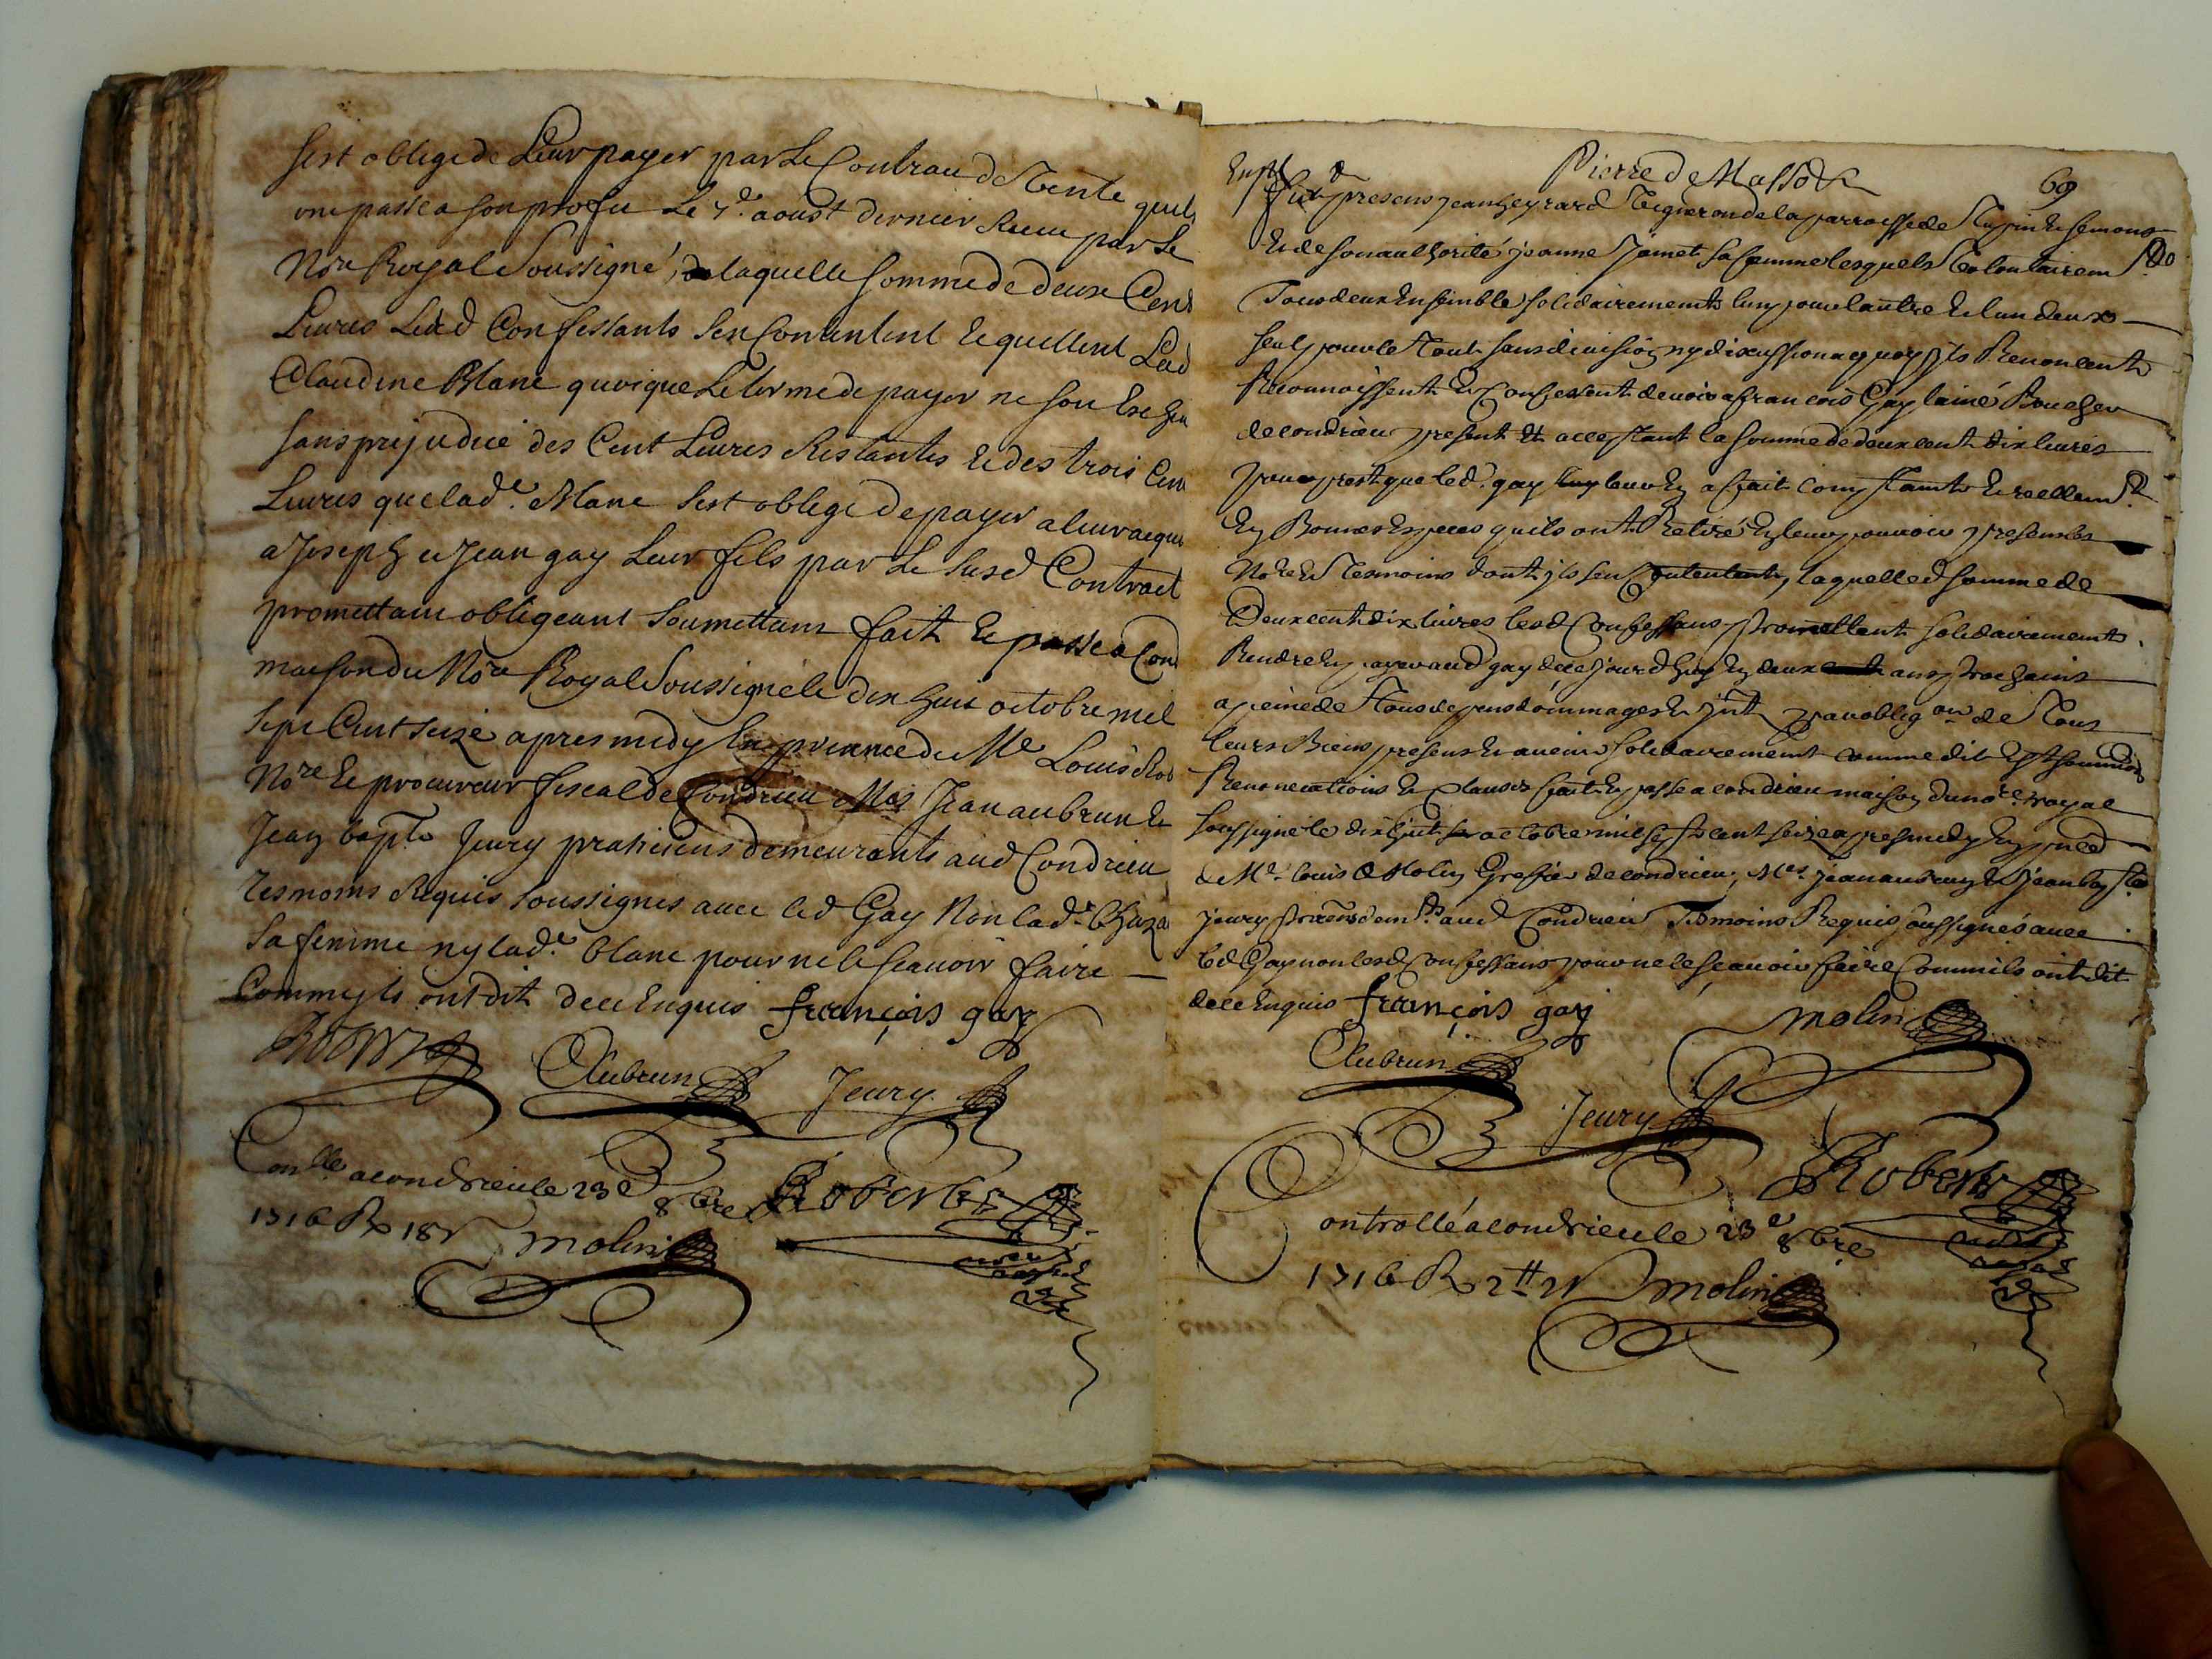 sest obligé de Leur payer par Le Contrau de Vente quils
ont passé a son profit Le 7e aoust dernier Receu par Le
Nore Royal Soussigné, de laquelle somme de deux Cent
Livres Lesd Confessants sen Contentent et quittent Lad
Claudine Blanc quoique Le terme de payer ne soit Escheu
sans prejudice des Cent Livres Restantes et des trois Cent
Livres que lade Blanc sest obligé de payer a leur acquit
a Joseph et Jean gay Leur fils par Le susd Contract
promettant obligeant soumettant fait et passé a Cond
maison du Nore Royal Soussigné le dix huit octobre mil
sept Cent seize apres midy En presence de Me Louis
Nore et procureur fiscal de Condrieu Mes Jean aubrun et
Jean bapte Jeury praticiens demeurants aud Condrieu
tesmoins Requis soussignes avec led Gay Non lade
sa femme ny lade blanc pour ne le scavoir faire
Comme jls ont dit de ce Enquis françois gay
Aubrun Jeury
Conlle a condrieu le 23e 8bre Robert
1716 R 18s molin
Pierre de Masso
69
furent presens jean heyrard Vigneron de la parroisse de Tupin et semons
et de son authorité jeanne Jamet sa femme lesquels Volontairemt
Tous deux Ensemble solidairement lun pour lautre et lun deux
seul pour le Tout sans division ny discussion a quoy jls Renoncent
Reconnoissent et Confessent devoir a françois Gay lainé Boucher
de condrieu present et acceptant la somme de deux cent dix livres
pour prest que led. gay leur En a fait Comptant et reellemt
En Bonnes Especes quils ont Retiré En leur pouvoir presents
Nore et Tesmoins dont jls sen Contentent, laquelled somme de
Deux cent dix livres lesd Confessans promettent solidairement
Rendre et payer aud gay de ce jourdhuy En deux ans prochains
a peine de Tous depens dommages et jnts par obligaon de Tous
leurs Biens presens et avenir solidairement comme dit Est soumissions
Renonciations et Clauses fait et passé a condrieu maison du nore royal
soussigné le dix huit octobre mil sept cent seize apres midy En pnce
de Me louis Molin Greffier de condrieu, Mes jean aubrun et Jean bapte
jeury praticiens demts aud Condrieu Tesmoins Requis soussignés avec
led Gay non lesd Confessans pour ne le scavoir faire Comme ils ont dit
de ce Enquis françois gay
molin
Aubrun
Jeury
Robert
Controllé a condrieu le 23e 8bre
1716 R 2tt 2s molin